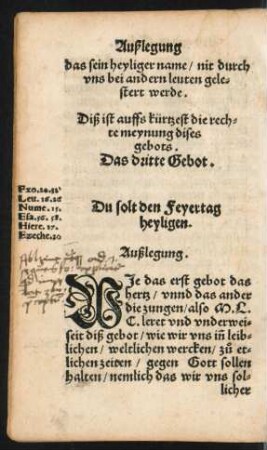 Außlegung
das sein heyliger name / nit durch
vns bei andern leuten gele-
stert werde.
Diß ist auffs kürtzest die rech-
te meynung dises
gebots.
Das dritte Gebot.
Exo.20.31
Leu. 16.26
Nume. 15.
Esa. 56. 58.
Hiere. 17.
Ezeche. 20
Du solt den Feyertag
heyligen.
Außlegung.
WJe das erst gebot das
hertz / vnnd das ander
die zungen / also M. L.
C. leret vnd vnderwei-
seit diß gebot / wie wir vns iñ leib-
lichen / weltlichen wercken / zů et-
lichen zeiten / gegen Gott sollen
halten / nemlich das wir vns sol-
licher